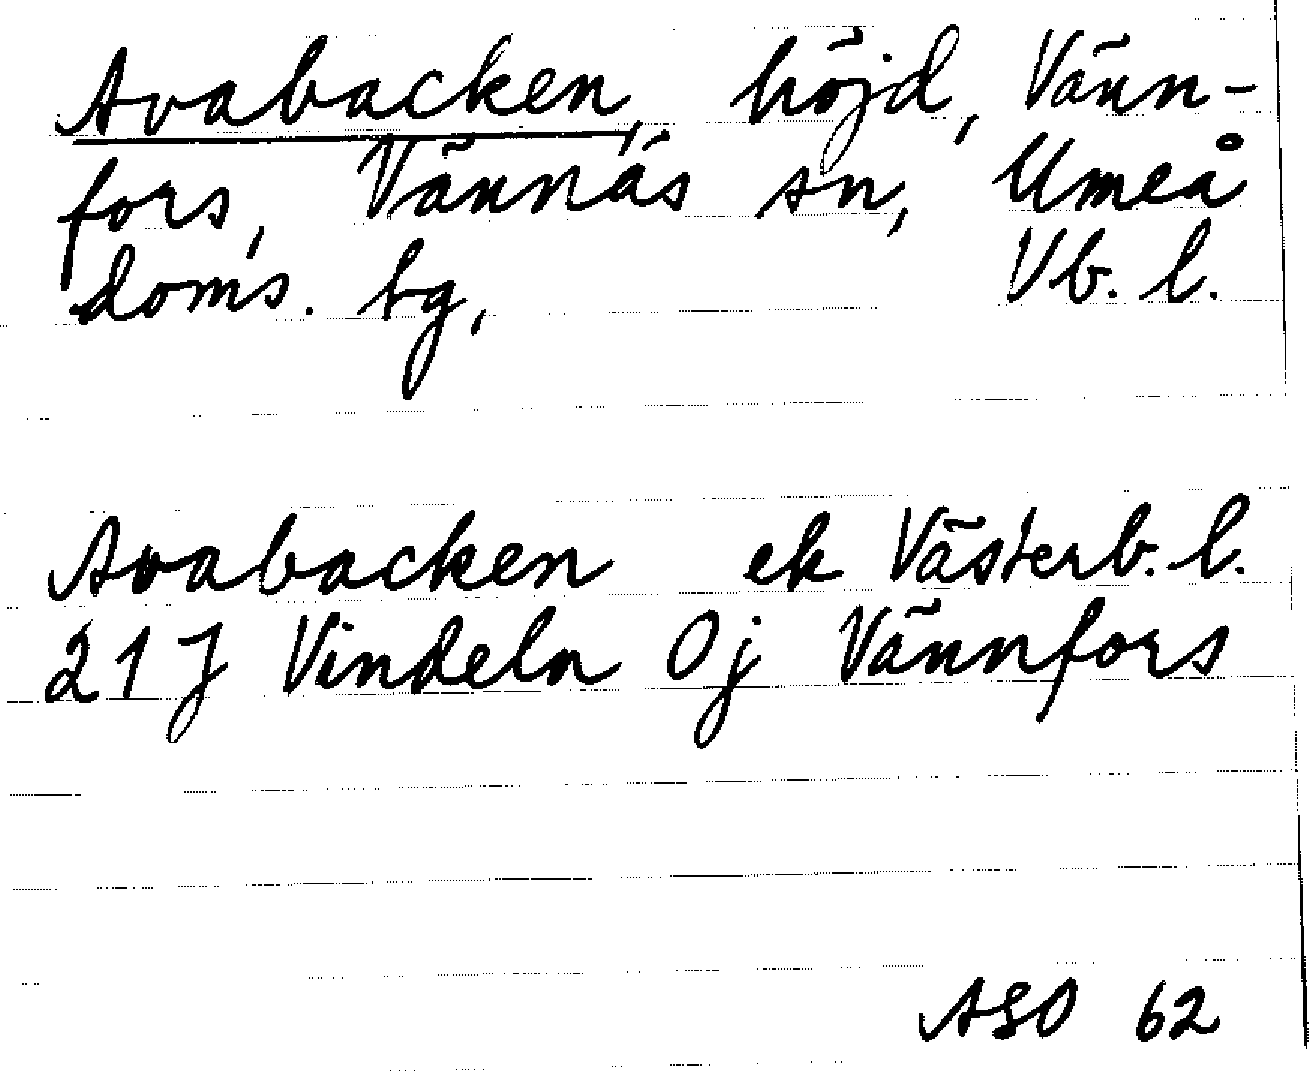 Avabacken, höjd, Vänn-
fors, Vännäs sn, Umeå
doms. bg, Vb. l.
Avabacken ek Västerb. l.
21 J Vindeln 0j Vännfors
ASO 62